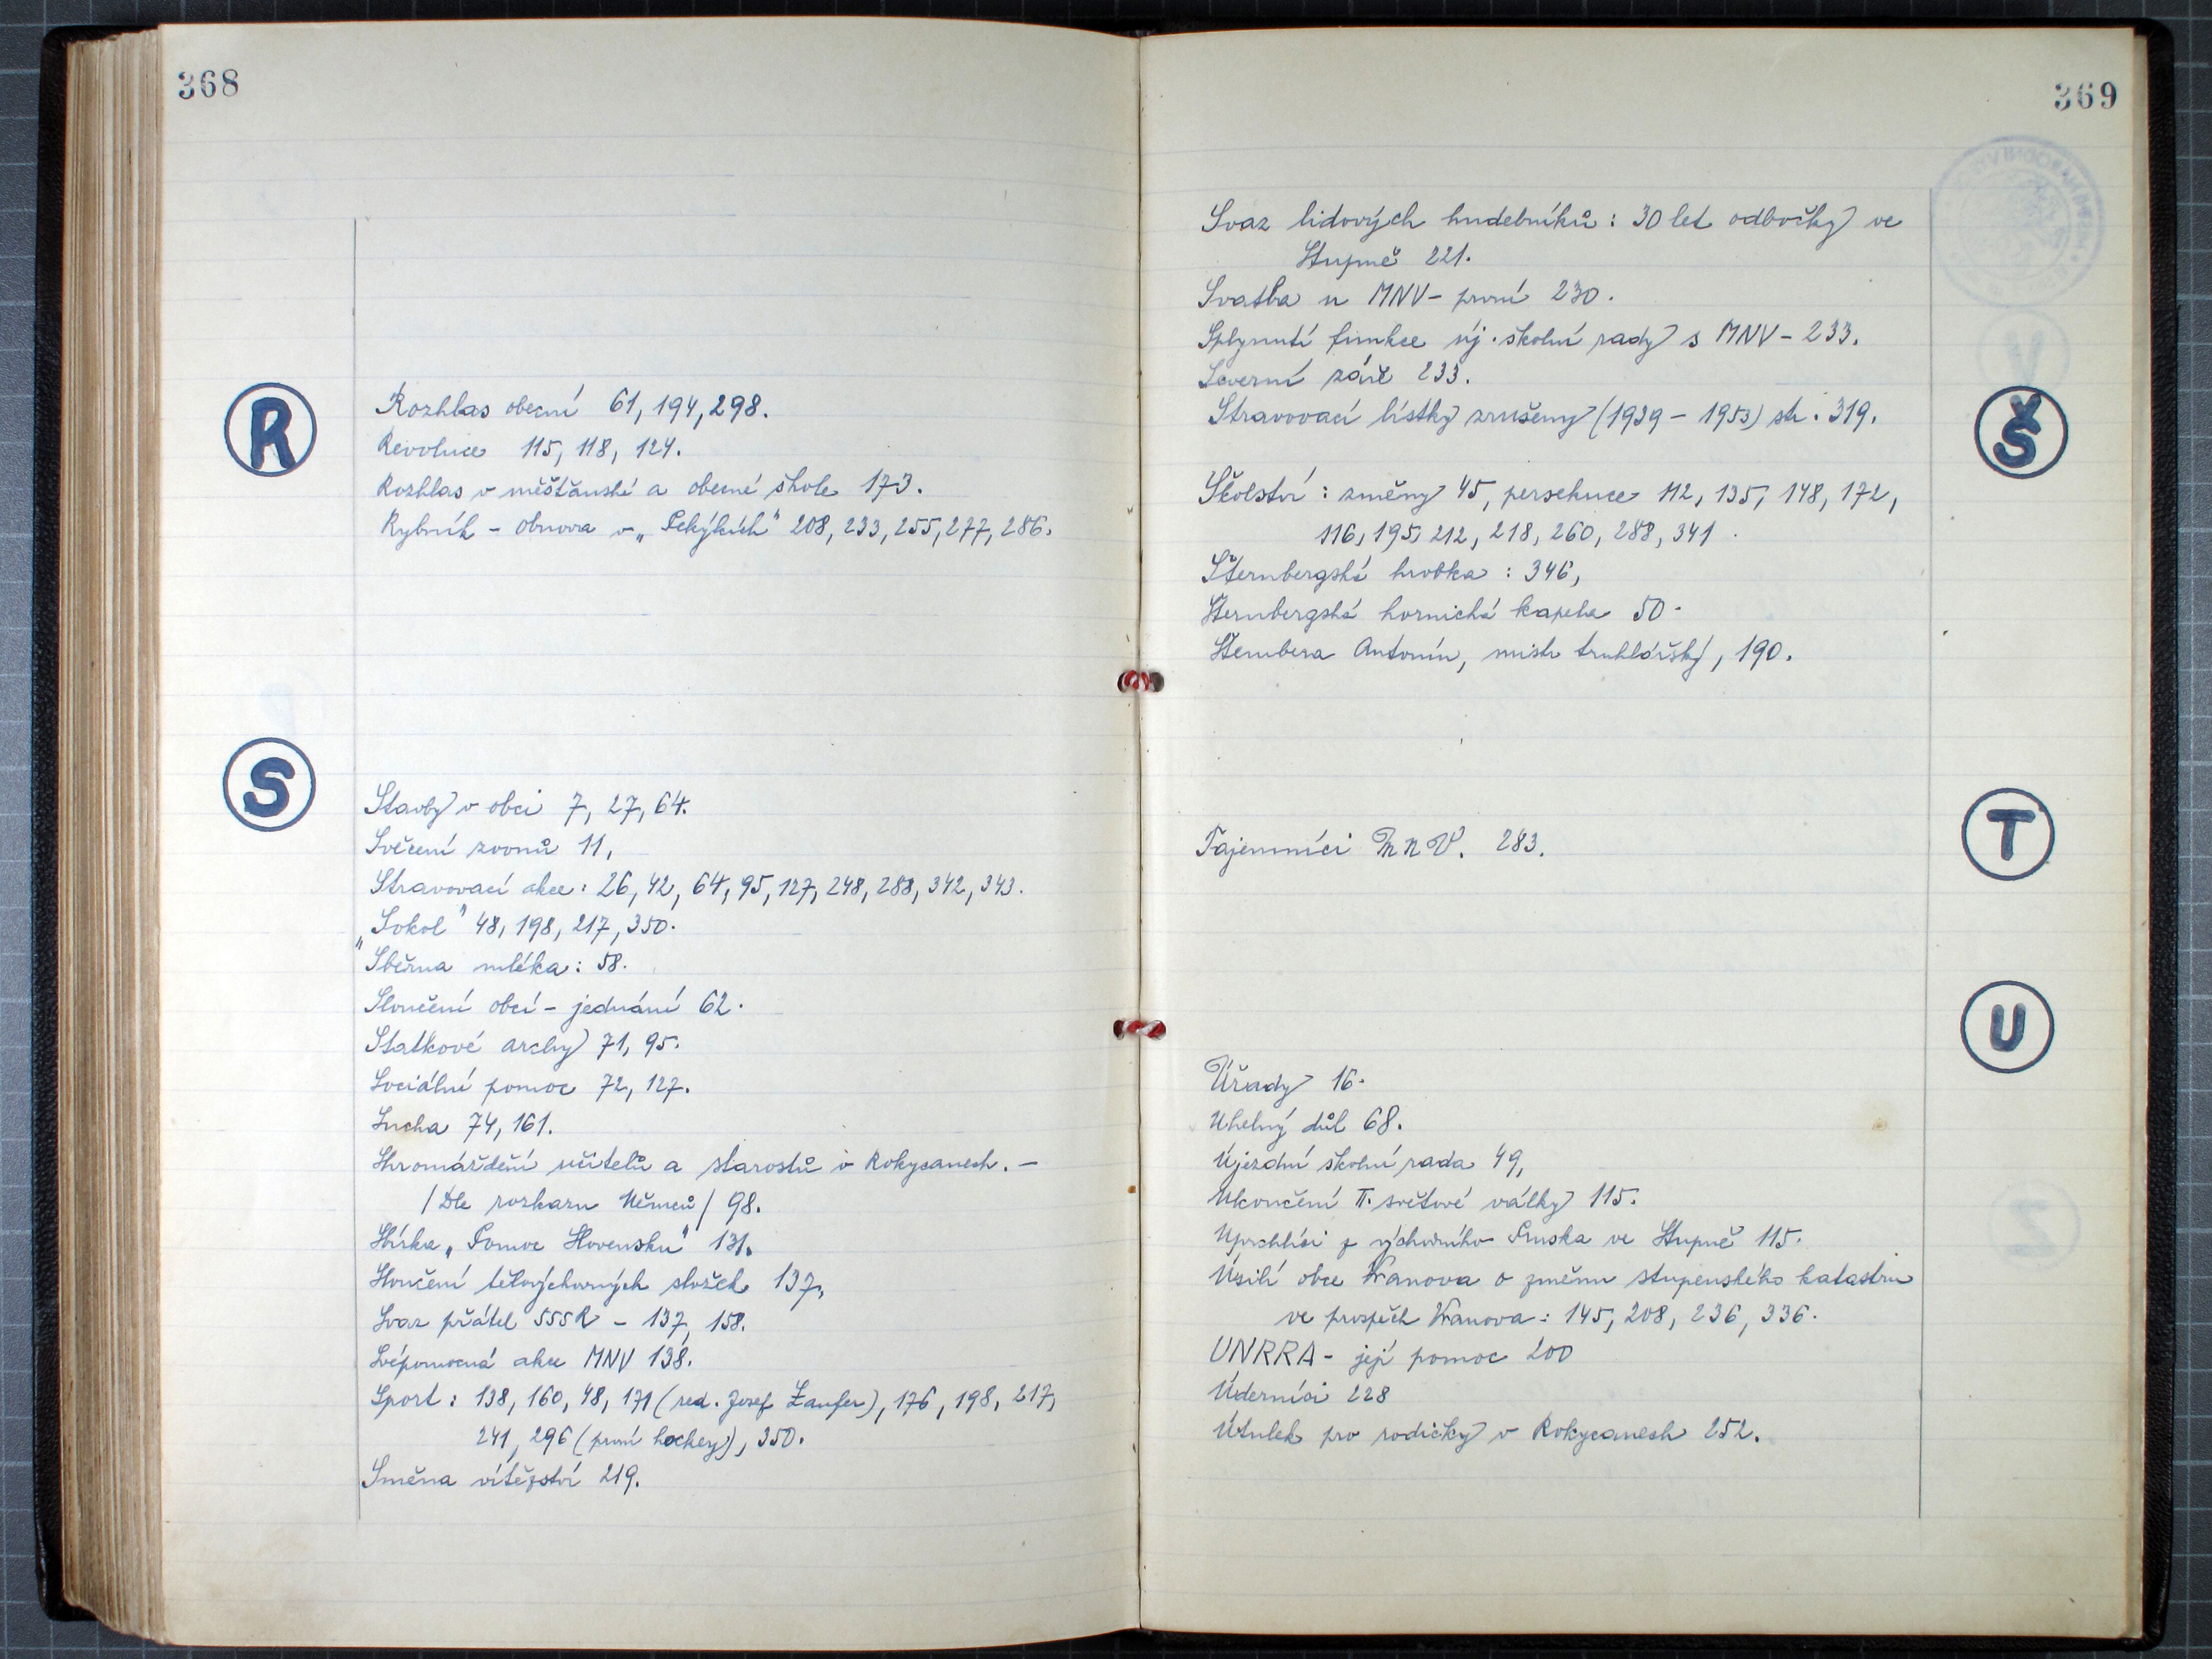 368
R
Rozhlas obecní 61, 194, 298.
Revoluce 115, 118, 124.
Rozhlas v měšťanské a obecné škole 173.
Rybník - obnova v „ 208, 233, 255, 277, 286.
S
Stavby v obci 7, 27, 64.
Svěcení zvonů 11,
Stravovací akce: 26, 42, 64, 95, 127, 248, 288, 342, 343.
„Sokol" 48, 198, 217, 350.
Sběrna mléka: 58.
Sloučení obcí - jednání 62.
Statkové archy 71, 95.
Sociální pomoc 72, 127.
Sucha 74, 161.
Shromáždění učitelů a starostů v Rokycanech. —
/Dle rozkazu Němců/ 98.
Sbírka „Pomoc Slovensku" 131.
Sloučení tělovýchovných složek 137,
Svaz přátel SSSR - 137, 158.
Svépomocná akce MNV 138.
Sport: 138, 160, 48, 171 (red. Josef Laufer), 176, 198, 217,
241, 296 (první hockey), 350.
Směna vítězství 219.
369
Svaz lidových hudebníků: 30 let odbočky ve
Stupně 221.
Svatba u MNV - první 230.
Splynutí funkce új. školní rady s MNV - 233.
Severní záře 233.
Stravovací lístky zrušeny (1939 - 1953) str. 319.
Š
Školství: změny 45, persekuce 112, 135, 148, 172,
116, 195, 212, 218, 260, 288, 341.
Šternbergská hrobka: 346,
Šternbergská hornická kapela 50.
Štembera Antonín, mistr truhlářský, 190.
T
Tajemníci MNV. 283.
U
Úřady 16.
Uhelný důl 68.
Újezdní školní rada 49,
Ukončení II. světové války 115.
Uprchlíci z východního Pruska ve Stupně 115.
Úsilí obce Vranova o změnu stupenského katastru
ve prospěch Vranova: 145, 208, 236, 336.
UNRRA - její pomoc 200
Úderníci 228
Útulek pro rodičky v Rokycanech 252.